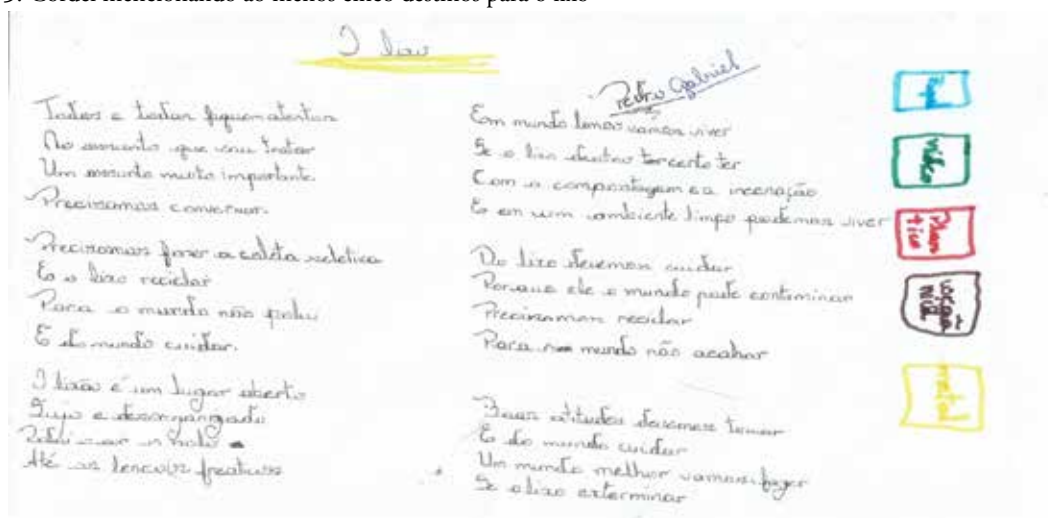 5. Cordel mencionando ao menos cinco destinos para o lixo
O lixo
Pedro Gabriel
Todos e todas fiquem atentos
No assunto que vou tratar
Um assunto muito importante
Precisamos conversar.
Precisamos fazer a coleta seletiva
E o lixo reciclar
Para o mundo não poluir
E do mundo cuidar.
O lixão é um lugar aberto
Sujo e
Polui o ar o solo
Até os lençois freaticos
Em mundo vamos viver
Se o lixo destino certo ter
Com a compostagem e a
E em um ambiente limpo podemos viver
Do lixo devemos cuidar
Porque ele o mundo pode contaminar
Precisamos reciclar
Para o mundo não acabar
Boas atitudes devemos tomar
E do mundo cuidar
Um mundo melhor vamos fazer
Se o lixo exterminar
Papel
vidro
Plas
tico
metal